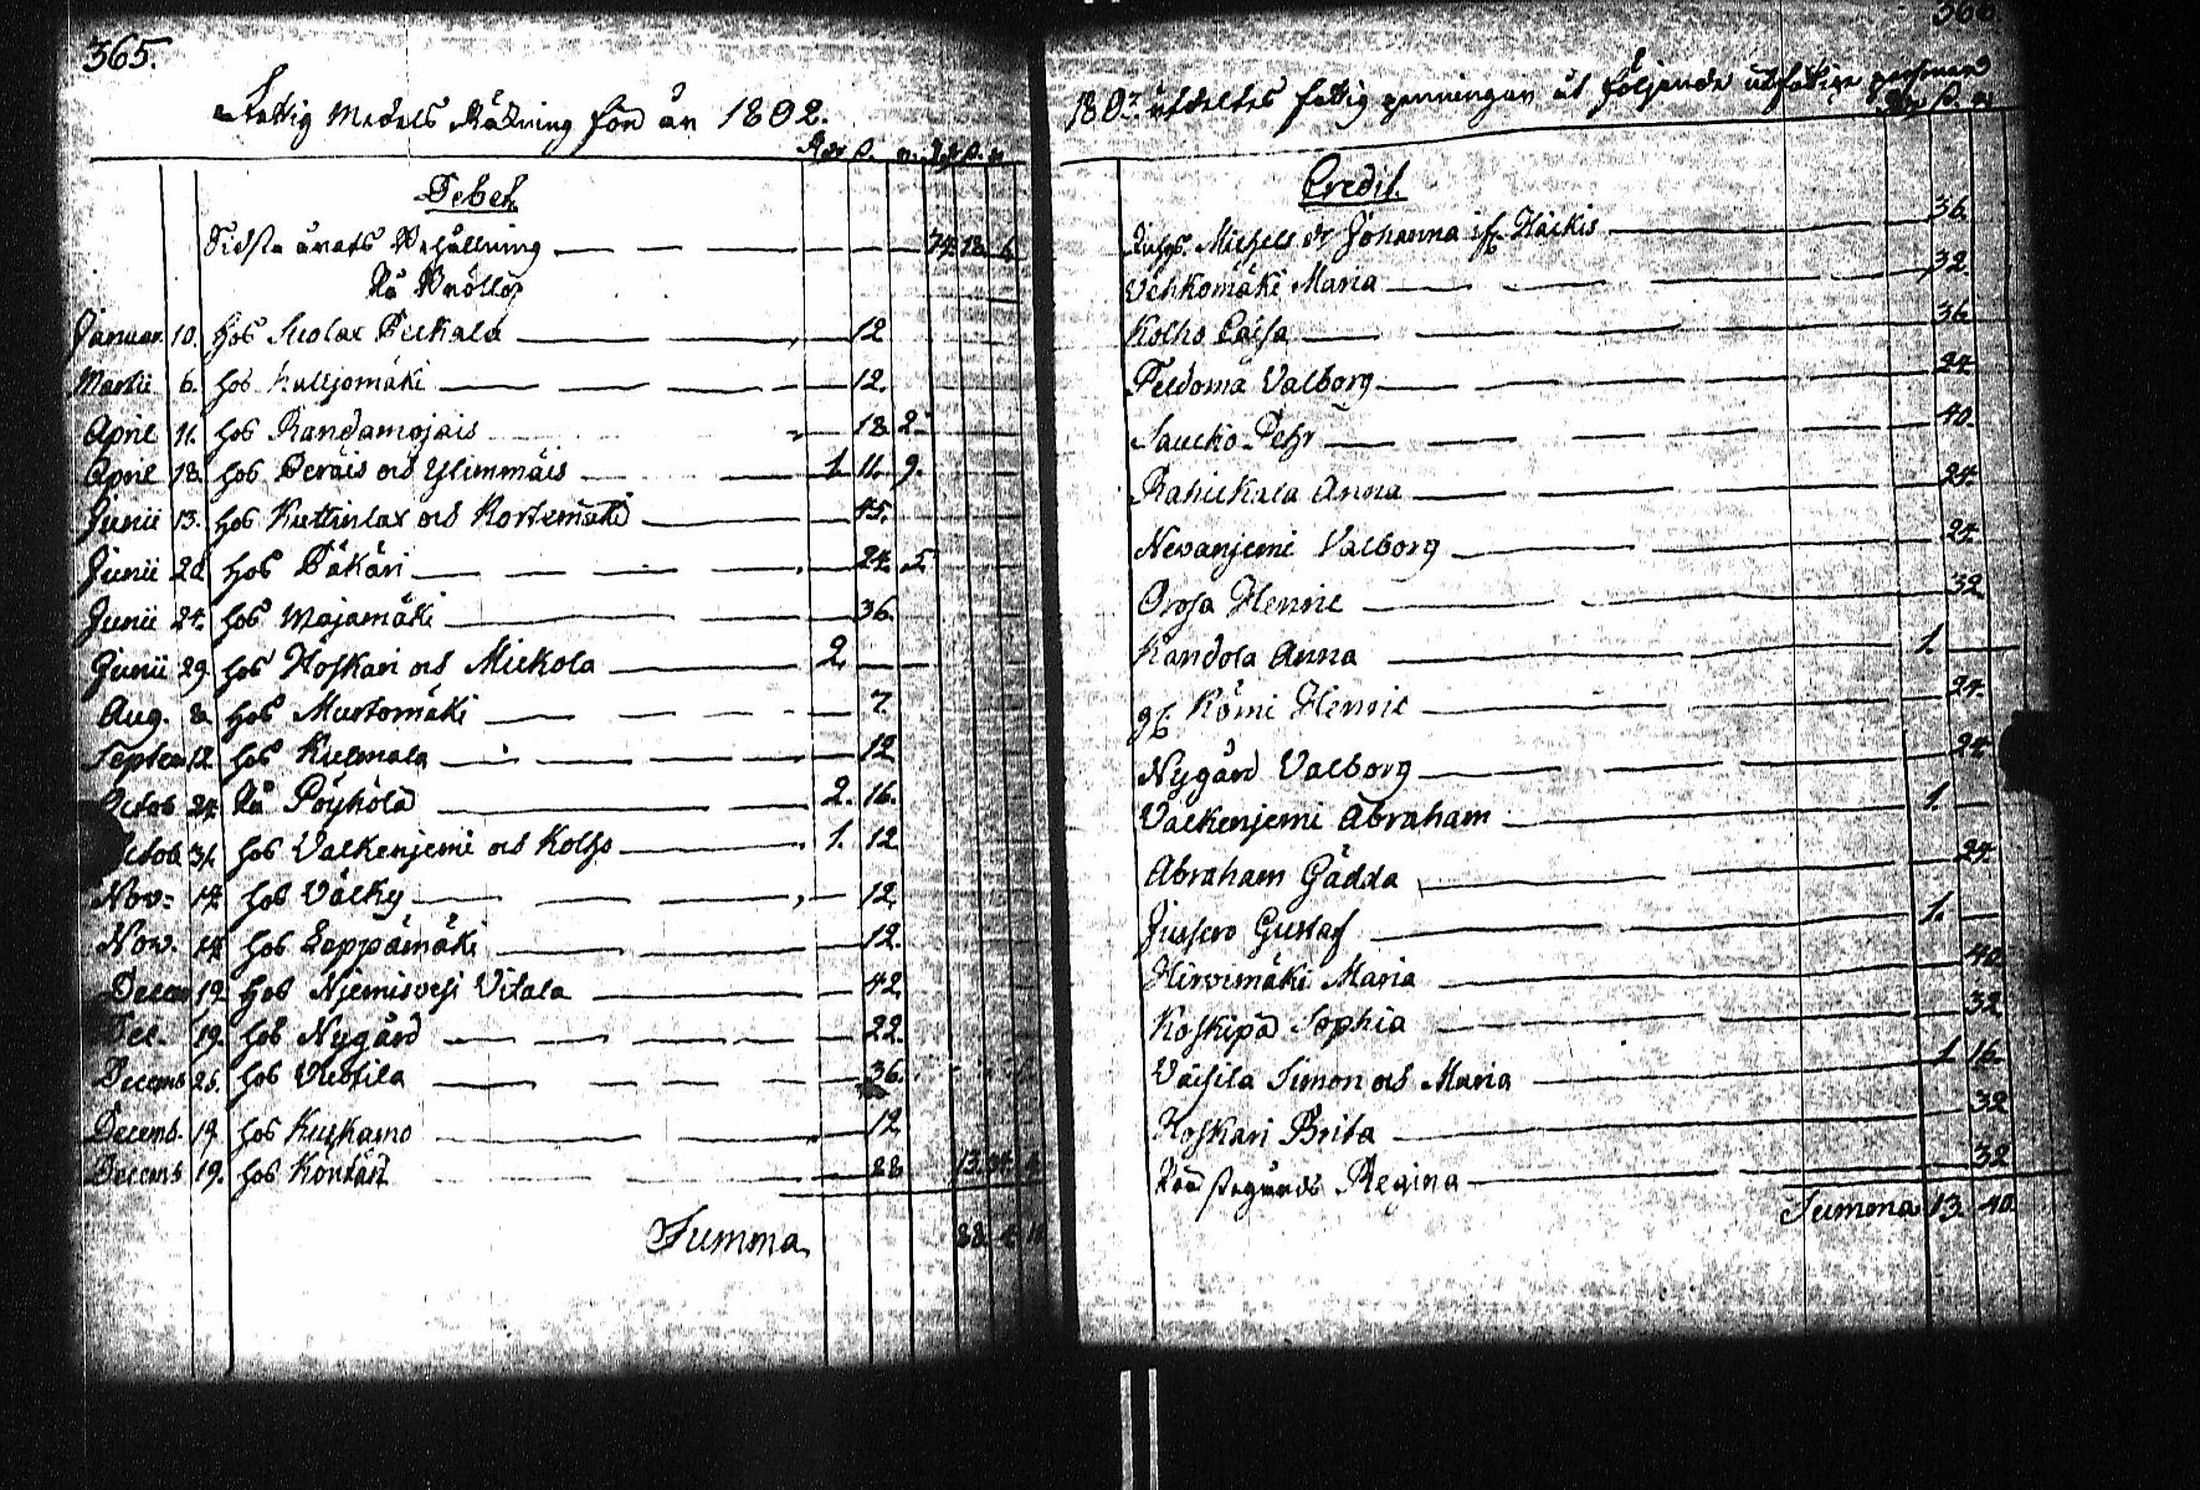 365.
Fattig Medels Räkning för år 1802.
Rdr ß. rs. Rdr ß. rs
Debet
Sidsta årets Behållning 74. 18. 6
På Bröllop
Januar. 10. hos Suolax Peckala 12
Martii 6. hos Kulljomäki 12.
April 11. hos Randamojais 18 2
April 18. hos Peräis och Ylimmäis 1 11. 9.
Junii 13. hos Kuttinlax och Kortemäki 45.
Junii 20 hos Päkäri 24. 5
Junii 24. hos Majamäki 36.
Junii 29. hos Hoskari och Muckola 2
Aug. 8. hos Mustomäki 7.
Septem 12 hos Kulmala 12
Octob 24 På Pöyhölä 2. 16.
Octob 31. hos Valkenjemi och Kolho 1. 12
Nov: 14 hos Välky 12.
Nov. 14 hos Leppämäki 12.
Decem 19 hos Njemisvesi Vitala 42
Dec. 19. hos Nygård 22.
Decemb 26. hos Vesfila 36.
Decemb. 19 hos Kuskamo 12
Decemb 19. hos Köntäri 28 13. 34. 4
Summa 88. 4 10
366
1802 utdeltes fattig penningar åt följande utfattiga personer
Rdr ß. rs
Credit.
Michels dr Johanna if. Häckis 36.
Vehkomäki Maria 32.
Kolho Caisa 36
Peldoma Valborg 24
Saucko Pehr 40.
Rahukala Anna 24.
Nevanjemi Valborg 24
Orosa Henric 32
Kandola Anna 1.
gl. Römi Henric 24.
Nygård Valborg 24
Valkenjemi Abraham 1.
Abraham Gädda 24.
Jussero Gustaf 1.
Hirvimäki Maria 40
Koskipä Sophia 32
Väisilä Simon och Maria 1 16.
Hoskari Brita 32
Regina 32
Summa 13. 40.